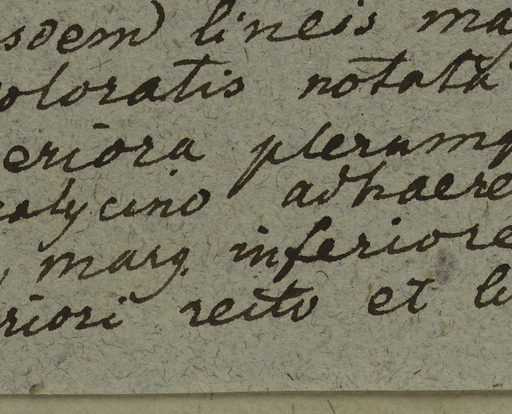 sdem) lineis mag
oloratis notata
eriora plerumq
calycino adhaere
, marg. inferiore
riori recto et li